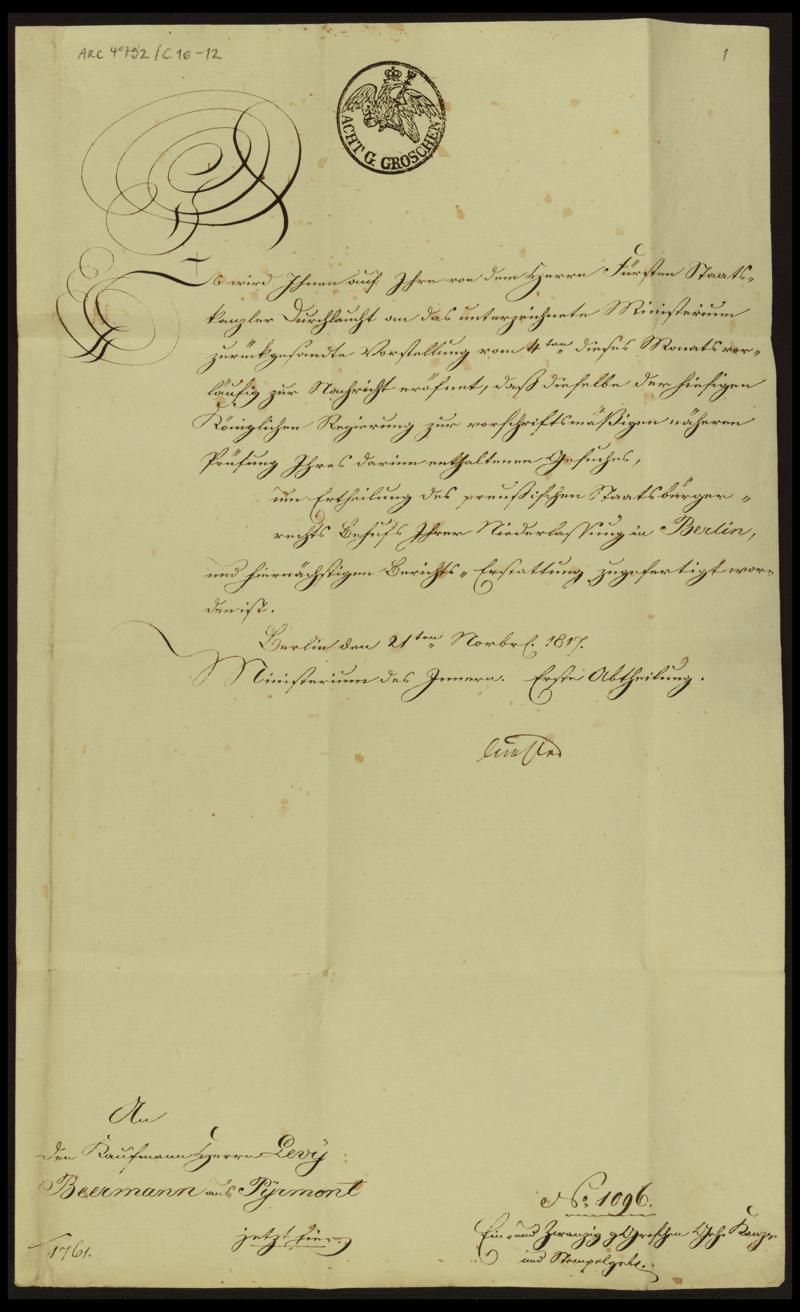 ARC 4° 792 / C 16-12
1
ACHT G. GROSCHEN
Es wird Ihnen auf Ihre von dem Herrn Fürsten Staats-
kanzler Durchlaucht an das unterzeichnete Ministerium
zurückgesandte Vorstellung vom 4ten dieses Monats vor-
läufig zur Nachricht eröfnet, daß dieselbe der hiesigen
Königlichen Regierung zur vorschriftsmäßigen näheren
Prüfung Ihres darinn enthaltenen Gesuches,
um Ertheilung des preußischen Staatsbürger-
rechts Behufs Ihrer Niederlassung in Berlin,
und hiernächstigen Berichts-Erstattung zugefertigt wor-
den ist.
Berlin den 21ten Novbr. 1817.
Ministerium des Innern. Erste Abtheilung.
An
den Kaufmann Herrn Levÿ
Beermann aus Pÿrmont
jetzt hier.
1761.
No. 1096.
Ein und Zwanzig gGroschen Geh. Kanz-
und Stempelgeb.